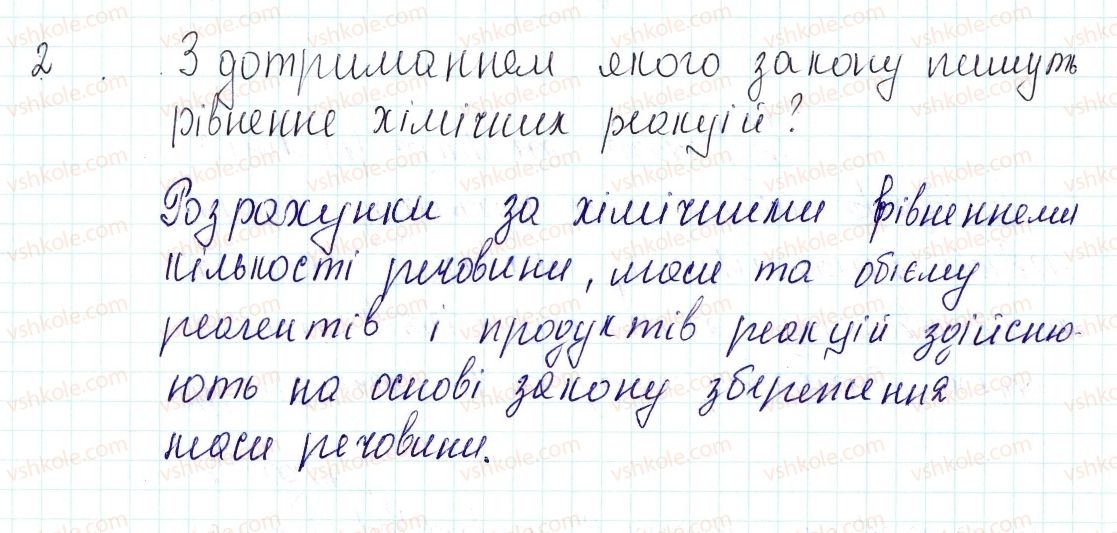 2 З дотриманнем якого закону пишуть
рівненне хімічних реакуій?
Розрахунки за хімічними рівненнеми
кількості речовини, маси та обієму
реагентів і продуктів реакцій здійсню-
ють на основі закону збереження
маси речовини.